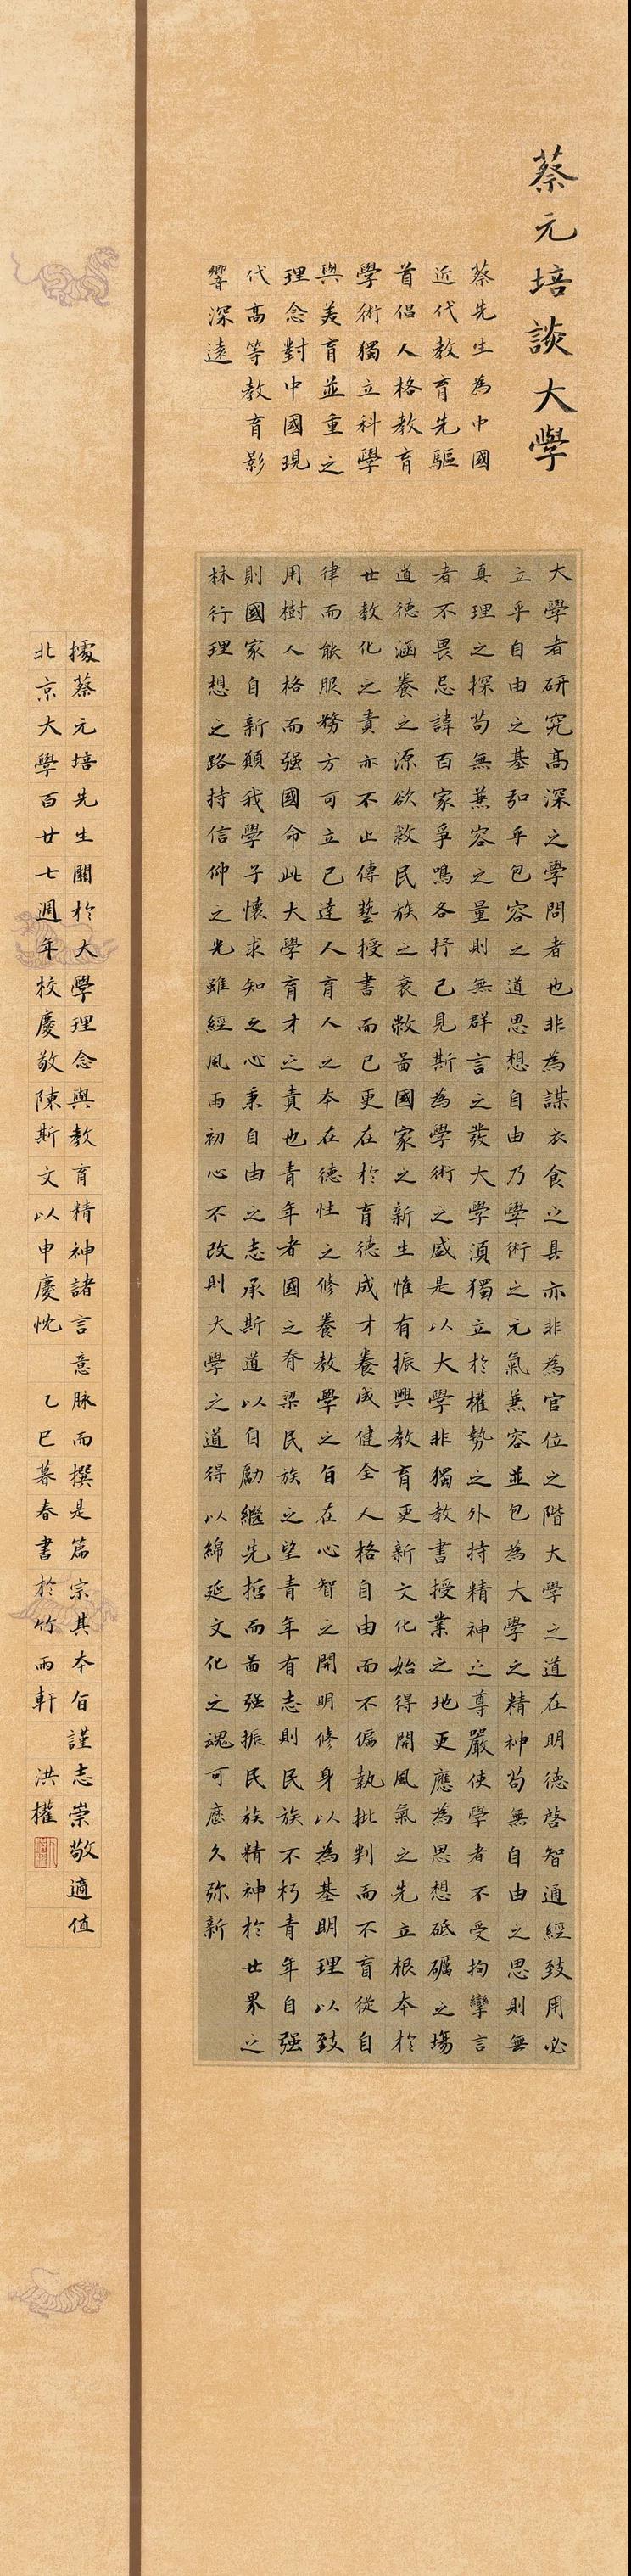 蔡元培談大學
蔡先生為中國
近代教育先驅
首倡人格教育
學術獨立科學
與美育並重之
理念對中國現
代高等教育影
響深遠
大學者研究高深之學問者也非為謀衣食之具亦非為官位之階大學之道在明德啓智通經致用必
立乎自由之基弘乎包容之道思想自由乃學術之元氣兼容並包為大學之精神苟無自由之思則無
真理之探苟無兼容之量則無群言之發大學須獨立於權勢之外持精神之尊嚴使學者不受拘攣言
者不畏忌諱百家爭鳴各抒己見斯為學術之盛是以大學非獨教書授業之地更應為思想砥礪之場
道德涵養之源欲救民族之衰敝啚國家之新生惟有振興教育更新文化始得開風氣之先立根本於
世教化之責亦不止傳藝授書而已更在於育德成才養成健全人格自由而不偏執批判而不盲從自
律而能服務方可立己達人育人之本在德性之修養教學之旨在心智之開明修身以為基明理以致
用樹人格而强國命此大學育才之責也青年者國之脊梁民族之望青年有志則民族不朽青年自强
則國家自新願我學子懷求知之心秉自由之志承斯道以自勵繼先哲而啚强振民族精神於世界之
林行理想之路持信仰之光雖經風雨初心不改則大學之道得以綿延文化之魂可歷久弥新
據蔡元培先生關於大學理念與教育精神諸言意脉而撰是篇宗其本旨謹志崇敬適值
北京大學百廿七週年校慶敬陳斯文以申慶忱 乙巳暮春書於竹雨軒 洪權